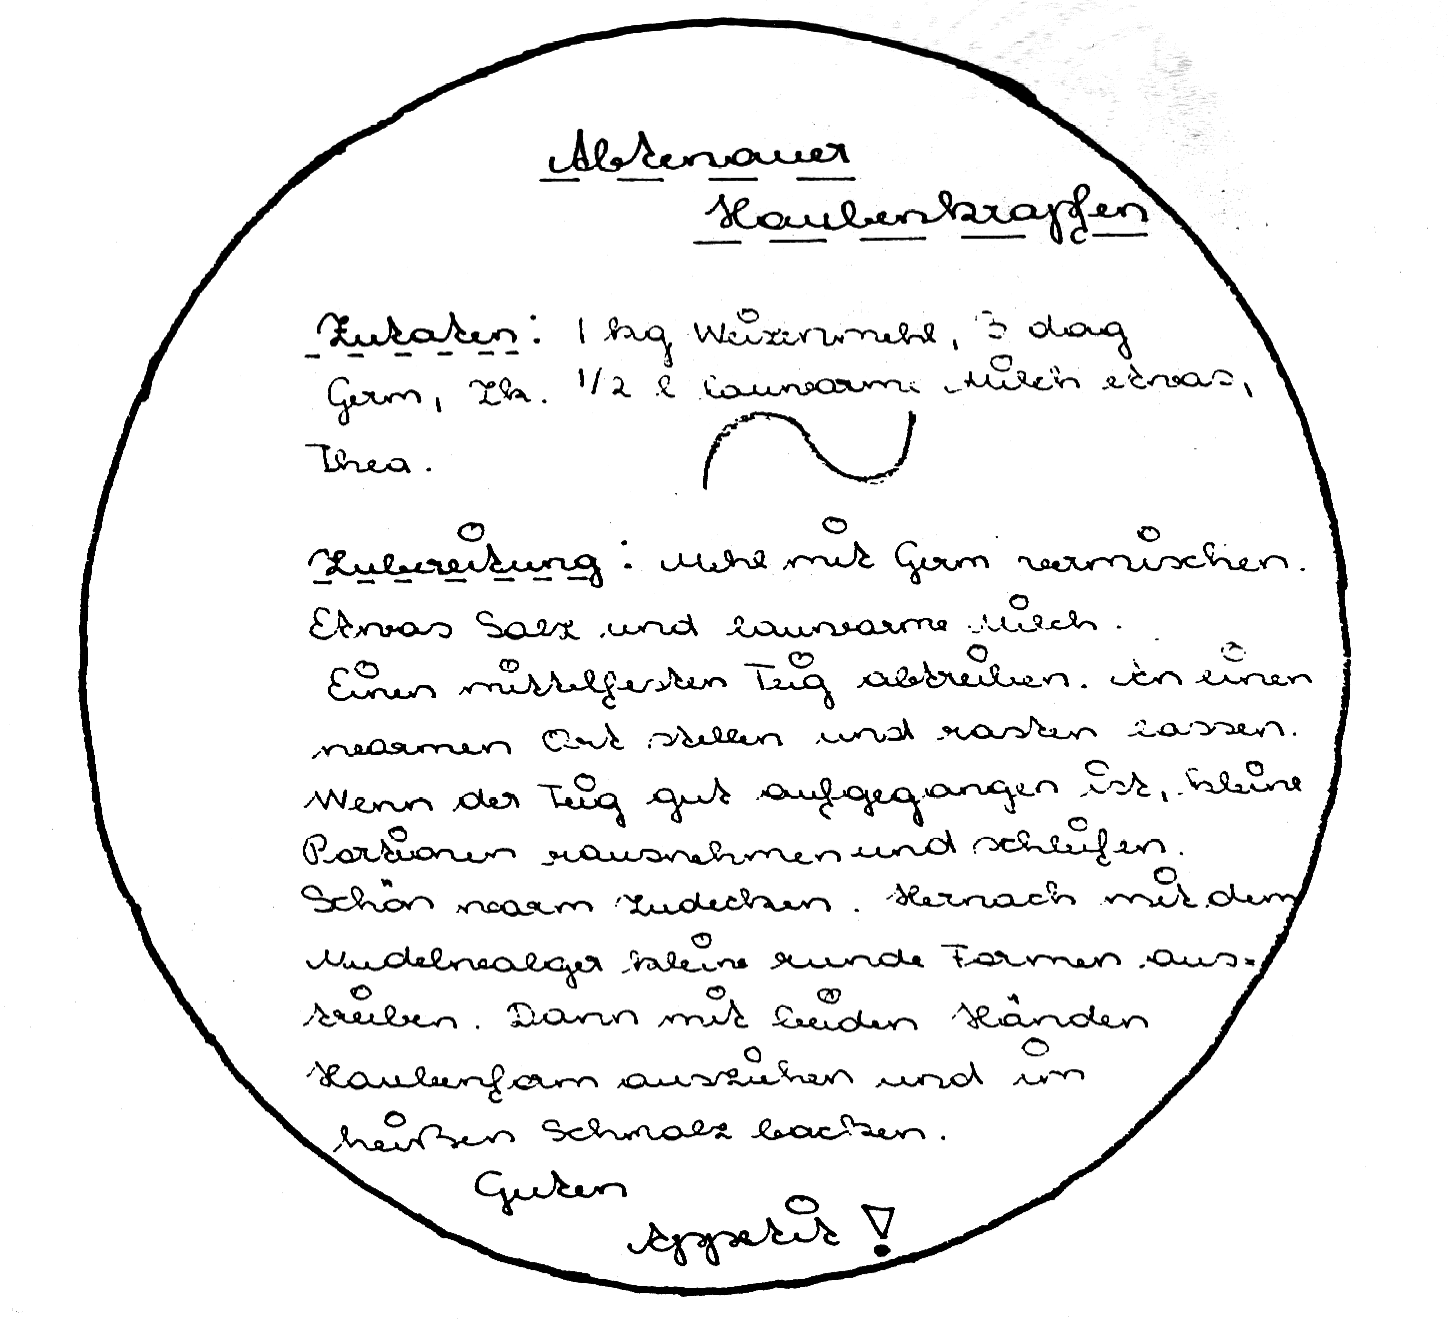 Abtenauer
Haubenkrapfen
Zutaten: 1 kg Weizenmehl, 3 dag
Germ, Zk. 1/2 l lauwarme Milch etwas,
Thea.
Zubereitung: Mehl mit Germ vermischen.
Etwas Salz und lauwarme Milch.
Einen mittelfesten Teig abtreiben. An einen
warmen Ort stellen und rasten lassen.
Wenn der Teig gut aufgegangen ist, kleine
Portionen rausnehmen und schleifen.
Schön warm zudecken. Hernach mit dem
Nudelwalger kleine runde Formen aus-
treiben. Dann mit beiden Händen
Haubenform ausziehen und im
heißen Schmalz backen.
Guten
Appetit!